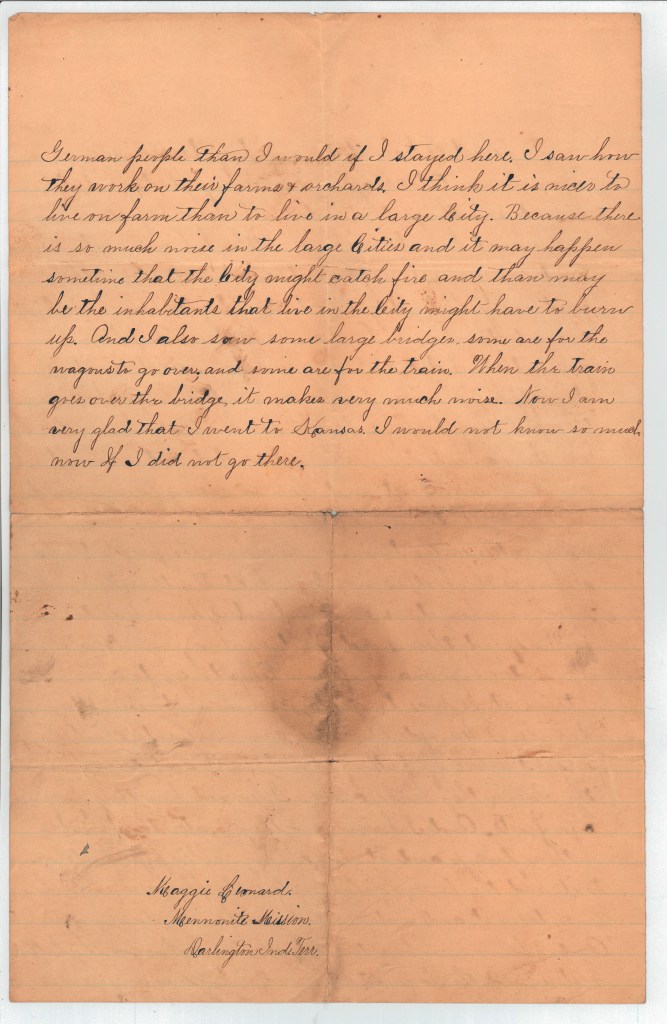 German people than I would if I stayed here. I saw how
they work on their farms & orchards. I think it is nicer to
live on farm than to live in a large City. Because there
is so much noise in the large Cities and it may happen
sometime that the City might catch fire and than may
be the inhabitants that live in the City might have to burn
up. And I also saw some large bridges some are for the
wagons to go over, and some are for the train. When the train
goes over the bridge, it makes very much noise. Now I am
very glad that I went to Kansas. I would not know so much
now If I did not go there.
Maggie Leonard.
Mennonite Mission.
Darlington Ind. Terr.